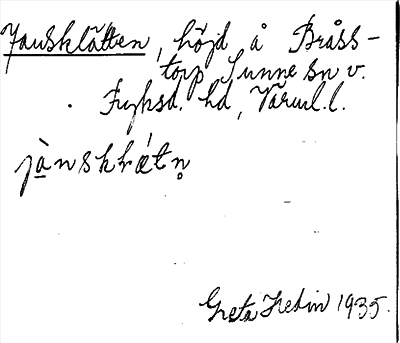 Jansklätten, höjd å Bråss-
torp Sunne sn v.
Fryksd. hd, Värml. l.
jànskl̥ǽtn̥
Greta Hedin 1935.